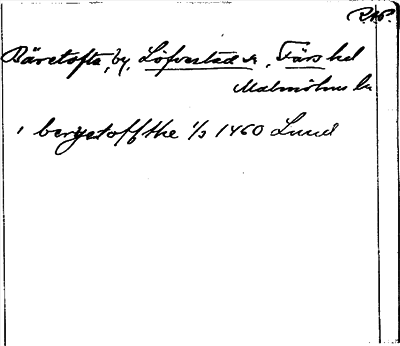 RAP.
Bäretofta, by, Löfvestad sn, Färs hd
Malmöhus län
i bergetoffthe 1/3 1460 Lund